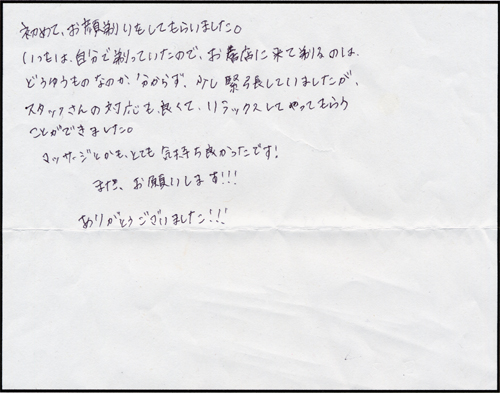 初めて、お顔剃りをしてもらいました。
いつもは、自分で剃っていたので、お店に来て剃るのは、
どうゆうものなのか、分からず、少し緊張していましたが、
スタッフさんの対応も良くて、リラックスしてやってもらう
ことができました。
マッサージとかも、とても気持ち良かったです!
また、お願いします!!!
ありがとうございました!!!